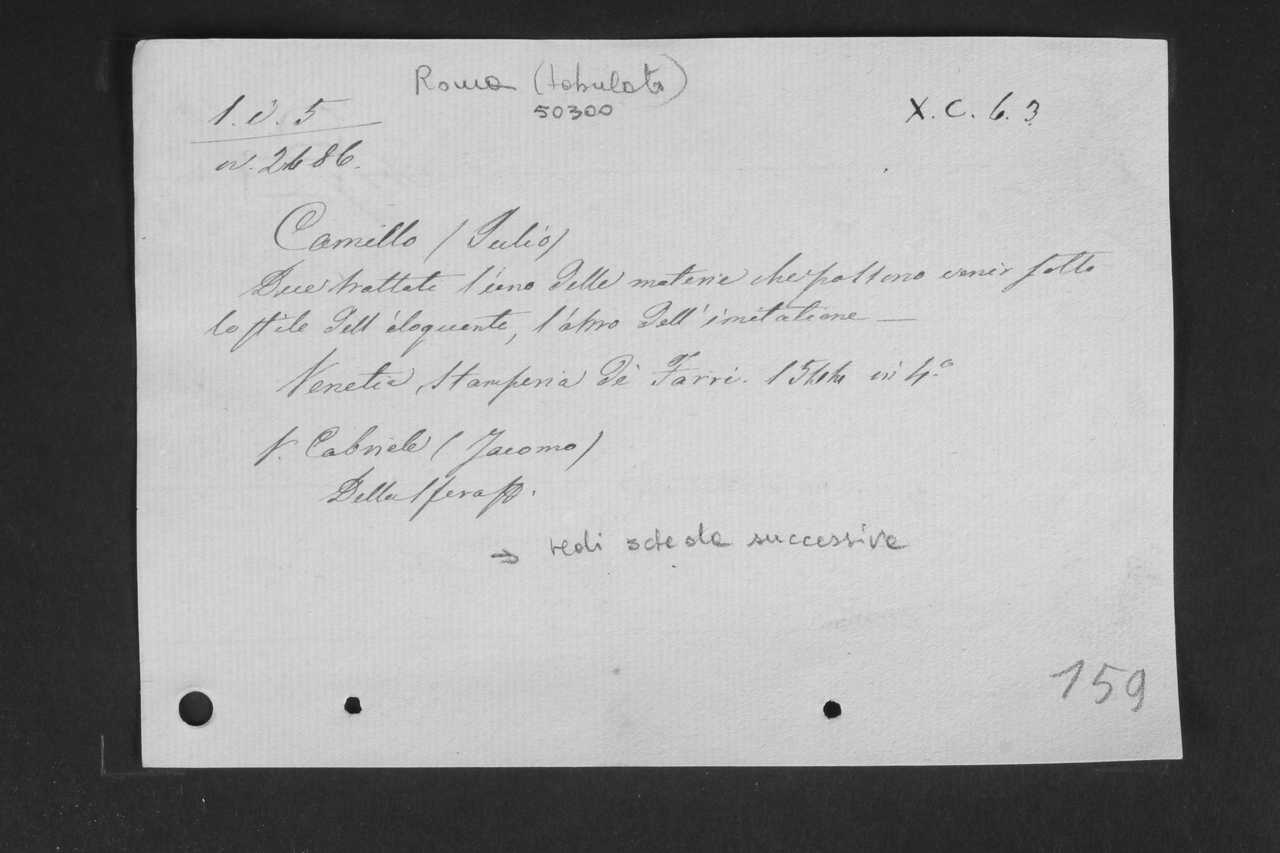 Roma (tabulato)
50300
1. i. 5
X. C. 6. 3.
n. 2686.
Camillo (Julio)
Due trattati l'uno delle materie che possono venir sotto
lo stile dell' eloquente, l'altro dell' imitatione —
Venetia, Stamperia de Farri. 1544 in 4.°
V. Gabriele (Jacomo)
Della Sfera
→ vedi scheda successiva
159